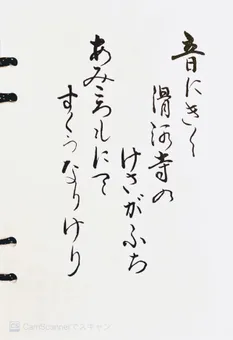 音にきく
滑河寺の
けさがふち
あみころもにて
すくうなりけり
CamScannerでスキャン